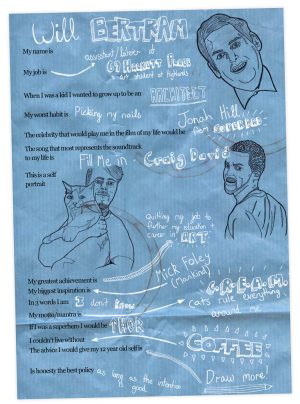 Will BERTRAM
My name is
assistant/labour at
My job is
69 HACKETT PLACE
art student at highlands
When I was a kid I wanted to grow up to be an
ARCHITECT
My worst habit is Picking my nails
Jonah Hill
The celebrity that would play me in the film of my life would be
from SUPERBAD
The song that most represents the soundtrack
to my life is Fill Me in - Craig David
This is a self
portrait
Quitting my job to
further my education +
career in ART
My greatest achievement is
Mick Foley
(Mankind)
My biggest inspiration is
In 3 words I am I don't know
C.R.E.A.M.
cats rule everything
around me
My motto/mantra is
If I was a superhero I would be THOR
I couldn't live without
COFFEE
The advice I would give my 12 year old self is
Draw more!
Is honesty the best policy as long as the intention
is good